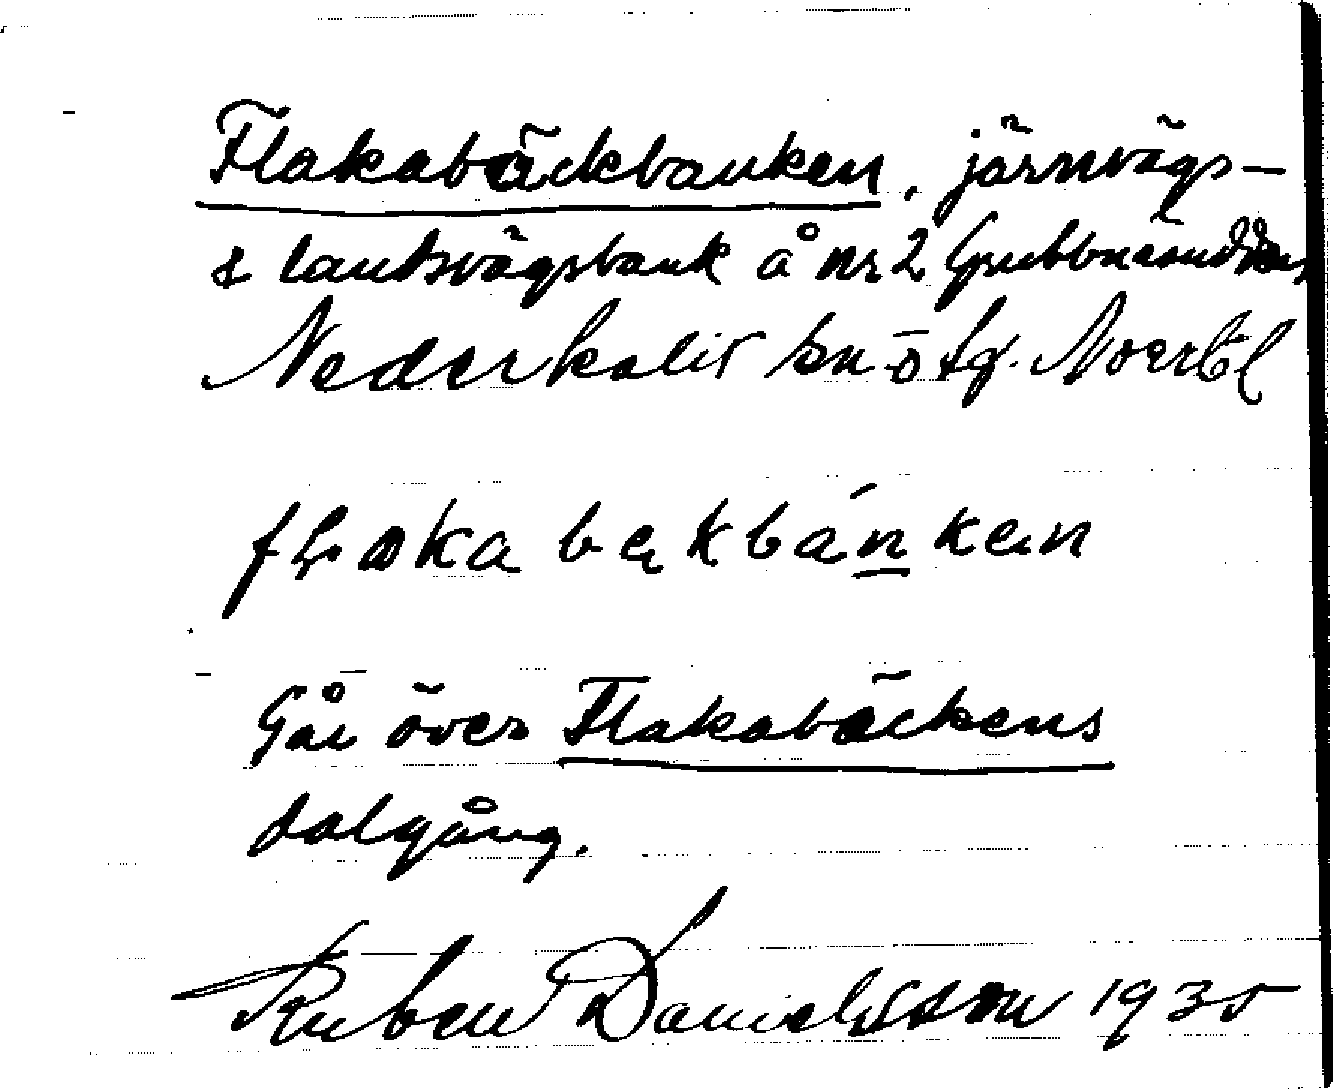 Flakabäckbanken, järnvägs-
& landsvägsbank å nr 2 Grubbnäsudden
Nederkalix sn ö tg. Norrb l
flaka bękbáṉken
Går över Flakabäckens
dalgång.
Ruben Danielsson 1935